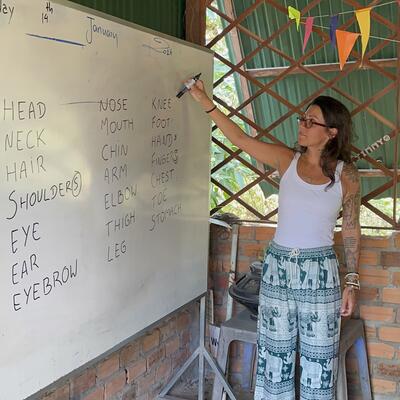 ay 14th January
HEAD
NECK
HAIR
SHOULDER(S)
EYE
EAR
EYEBROW
NOSE
MOUTH
CHIN
ARM
ELBOW
THIGH
LEG
KNEE
FOOT
HANDS
FINGERS
CHEST
TOE
STOMACH